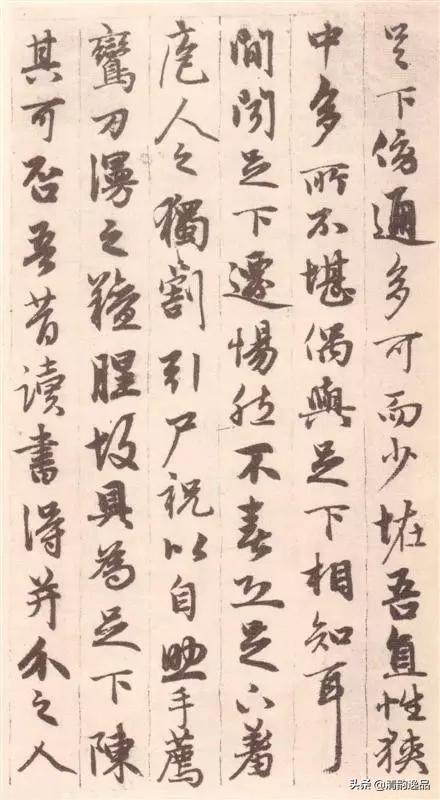 足下傍通多可而少恠吾直性狹
中多所不堪偶與足下相知耳
間聞足下遷惕然不喜恐足下羞
庖人之獨割引尸祝以自助手薦
鸞刀漫之羶腥故具為足下陳
其可否吾昔讀書得并介之人
头条 @清韵逸品